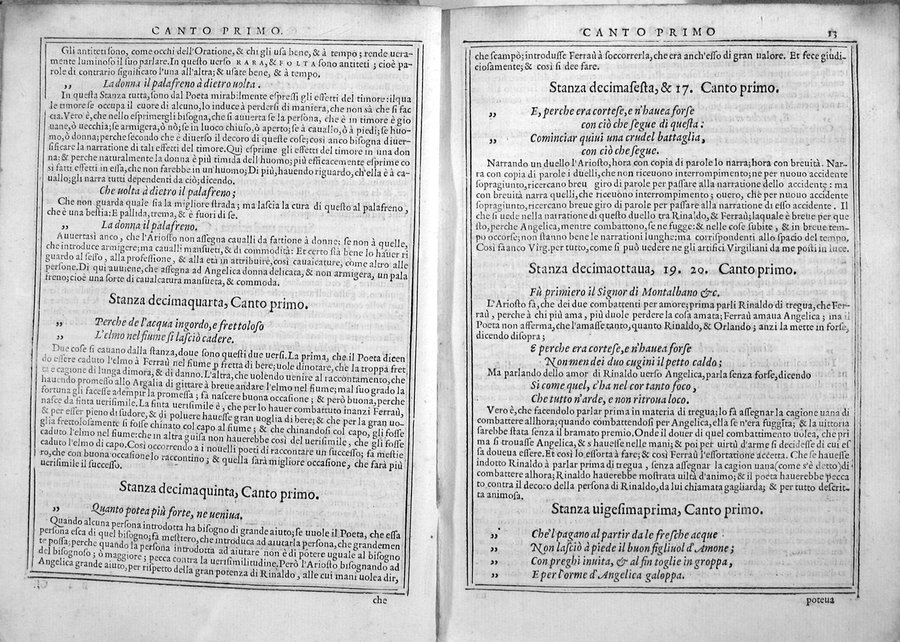 CANTO PRIMO.
Gli antiteti sono, come occhi dell'Oratione, & chi gli usa bene, & à tempo; rende uera-
mente luminoso il suo parlare. In questo uerso RARA, & FOLTA sono antiteti; cioè pa-
role di contrario significato l'una all'altra; & usate bene, & à tempo.
„ La donna il palafreno à dietro uolta.
In questa Stanza tutta, sono dal Poeta mirabilmente espressi gli effetti del timore: il qua
le timore se occupa il cuore di alcuno, lo induce à perdersi di maniera, che non sà che si fac
cia. Vero è, che nello esprimergli bisogna, che si auuerta se la persona, che è in timore è gio
uane, ò uecchia; se armigera, ò nò; se in luoco chiuso, ò aperto; se à cauallo, ò à piedi; se huo-
mo, ò donna; perche secondo che è diuerso il decoro di queste cose; così anco bisogna diuer-
sificare la narratione di tali effetti del timore. Qui esprime gli effetti del timore in una don
na: & perche naturalmente la donna è più timida dell'huomo; più efficacemente esprime co
si fatti effetti in essa, che non farebbe in un'huomo; Di più, hauendo riguardo, ch'ella è à ca-
uallo; gli narra tutti dependenti da ciò; dicendo.
Che uolta à dietro il palafreno;
Che non guarda quale sia la migliore strada; ma lascia la cura di questo al palafreno,
che è una bestia: E pallida, trema, & è fuori di se.
„ La donna il palafreno.
Auuertasi anco, che l'Ariosto non assegna caualli da fattione à donne; se non à quelle,
che introduce armigere; ma caualli mansueti, & di commodità: Et certo stà bene lo hauer ri
guardo al sesso, alla professione, & alla età in attribuire, così caualcature, come altro alle
persone. Di quì auuiene, che assegna ad Angelica donna delicata, & non armigera, un pala
freno; cioè una sorte di caualcatura mansueta, & commoda.
Stanza decimaquarta, Canto primo.
„ Perche de l'acqua ingordo, e frettoloso
„ L'elmo nel fiume si lasciò cadere.
Due cose si cauano dalla stanza, doue sono questi due uersi. La prima, che il Poeta dicen
do essere caduto l'elmo à Ferraù nel fiume p fretta di bere; uole dinotare, che la troppa fret
ta e cagione di lunga dimora, & di danno. L'altra, che uolendo uenire al raccontamento, che
hauendo promesso allo Argalia di gittare à breue andare l'elmo nel fiume; mal suo grado la
fortuna gli facesse adempir la promessa; fà nascere buona occasione; & però buona, perche
nasce da finta uerisimile. La finta uerisimile è, che per lo hauer combattuto inanzi Ferraù,
& per esser pieno di sudore, & di poluere hauesse gran uoglia di bere; & che per la gran uo-
glia frettolosamente si fosse chinato col capo al fiume; & che chinandosi col capo, gli fosse
caduto l'elmo nel fiume: che in altra guisa non hauerebbe così del uerisimile, che gli fosse
caduto l'elmo di capo. Così occorrendo à i nouelli poeti di raccontare un successo; fà mestie
ro, che con buona occasione lo raccontino; & quella sarà migliore occasione, che farà più
uerisimile il successo.
Stanza decimaquinta, Canto primo.
„ Quanto potea più forte, ne ueniua.
Quando alcuna persona introdotta hà bisogno di grande aiuto; se uuole il Poeta, che essa
persona esca di quel bisogno; fà mestiero, che introduca ad aiutarla persona, che grandemen
te possa: perche quando la persona introdotta ad aiutare non è di potere uguale al bisogno
del bisognoso; ò maggiore; pecca contra la uerisimilitudine. Però l'Ariosto bisognando ad
Angelica grande aiuto, per rispetto della gran potenza di Rinaldo, alle cui mani uolea dir,
che
CANTO PRIMO 13
che scampò; introdusse Ferraù à soccorrerla, che era anch'esso di gran ualore. Et fece giudi-
ciosamente; & così si dee fare.
Stanza decimasesta, & 17. Canto primo.
„ E, perche era cortese, e n'hauea forse
con ciò che segue di questa:
„ Cominciar quiui una crudel battaglia,
con ciò che segue.
Narrando un duello l'Ariosto, hora con copia di parole lo narra; hora con breuità. Nar-
ra con copia di parole i duelli, che non riceuono interrompimento; ne per nuouo accidente
sopragiunto, ricercano breu giro di parole per passare alla narratione dello accidente: ma
con breuità narra quelli, che riceuono interrompimento; ouero, che per nuouo accidente
sopragiunto, ricercano breue giro di parole per passare alla narratione di esso accidente. Il
che si uede nella narratione di questo duello tra Rinaldo, & Ferraù; laquale è breue per que
sto, perche Angelica, mentre combattono, se ne fugge: & nelle cose subite, & in breue tem-
po occorse; non stanno bene le narrationi lunghe; ma corrispondenti allo spacio del tempo.
Così fà anco Virg. per tutto, come si può uedere ne gli artifici Virgiliani da me posti in luce.
Stanza decimaottaua, 19. 20. Canto primo.
Fù primiero il Signor di Montalbano &c.
L'Ariosto fà, che de i due combattenti per amore; prima parli Rinaldo di tregua, che Fer-
raù, perche à chi più ama, più duole perdere la cosa amata; Ferraù amaua Angelica; ma il
Poeta non afferma, che l'amasse tanto, quanto Rinaldo, & Orlando; anzi la mette in forse,
dicendo di sopra;
E perche era cortese, e n'hauea forse
Non men de i dui cugini il petto caldo;
Ma parlando dello amor di Rinaldo uerso Angelica, parla senza forse, dicendo
Si come quel, c'ha nel cor tanto foco,
Che tutto n'arde, e non ritroua loco.
Vero è, che facendolo parlar prima in materia di tregua; lo fà assegnar la cagion uana di
combattere allhora; quando combattendosi per Angelica, ella se n'era fuggita; & la uittoria
sarebbe stata senza il bramato premio. Onde il douer di quel combattimento uolea, che pri
ma si trouasse Angelica, & s'hauesse nelle mani; & poi per uirtù d'arme si decidesse di cui es
sa doueua essere. Et così lo essorta à fare; & così Ferraù l'essortatione accetta. Che se hauesse
indotto Rinaldo à parlar prima di tregua, senza assegnar la cagion uana (come s'è detto) di
combattere allhora; Rinaldo hauerebbe mostrata uiltà d'animo; & il poeta hauerebbe pecca
to contra il decoro della persona di Rinaldo, da lui chiamata gagliarda; & per tutto descrit-
ta animosa.
Stanza uigesimaprima, Canto primo.
„ Che'l pagano al partir da le fresche acque
„ Non lasciò à piede il buon figliuol d'Amone;
„ Con preghi inuita, & al fin toglie in groppa,
„ E per l'orme d'Angelica galoppa.
poteua